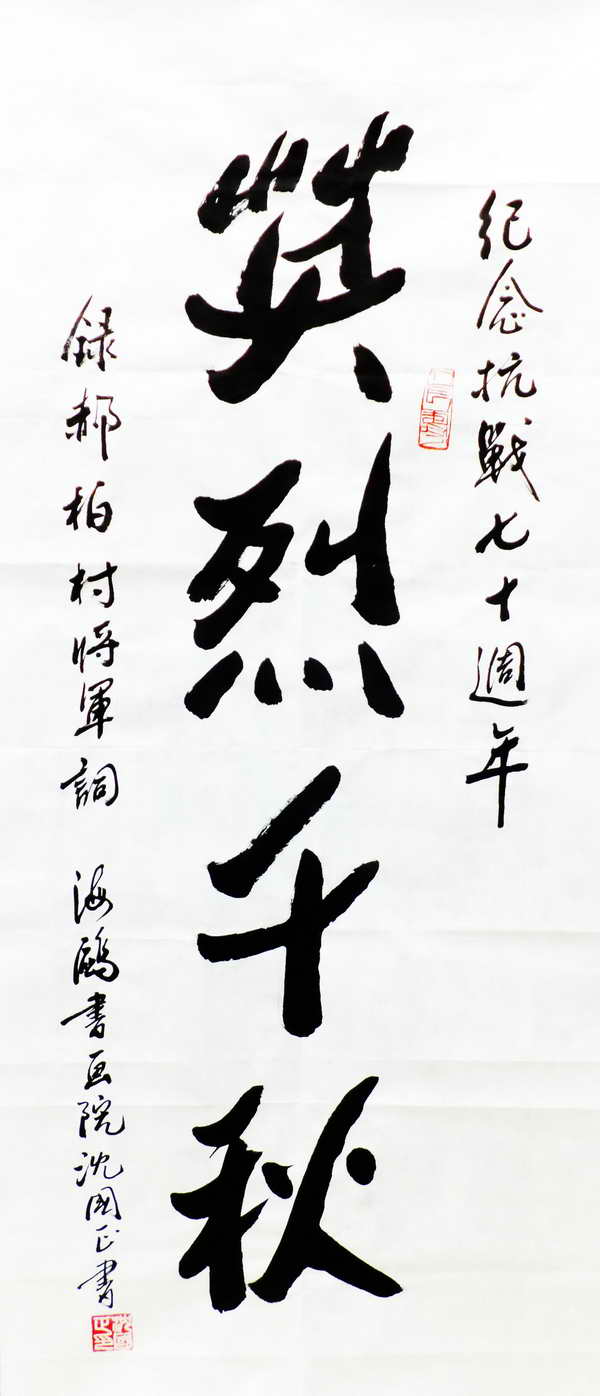 紀念抗戰七十週年
英烈千秋
録郝柏村將軍詞 海鷗書画院沈國正書